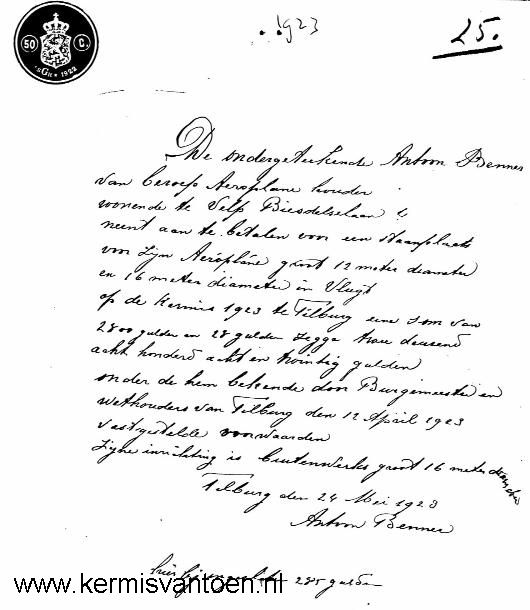 50 C.
'sGH * 1922
1923
25.
De ondergeteekende Antoon Benner
van beroep Aeroplane houder
wonende te Velp Biesdelselaan
neemt aan te betalen voor een staanplaats
voor zijn Aeroplane groot 12 meter diameter
en 16 meter diameter in Vlugt
op de Kermis 1923 te Tilburg eene som van
2800 gulden en 28 gulden zegge twee duizend
acht honderd acht en twintig gulden
onder de hem bekende door Burgemeester en
Wethouders van Tilburg den 12 April 1923
vastgestelde voorwaarden
Zijne inrichting is buitenwerks groot 16 meter diameter
Tilburg den 24 Mei 1923
Antoon Benner
hierbij 285 gulden
www.kermisvantoen.nl